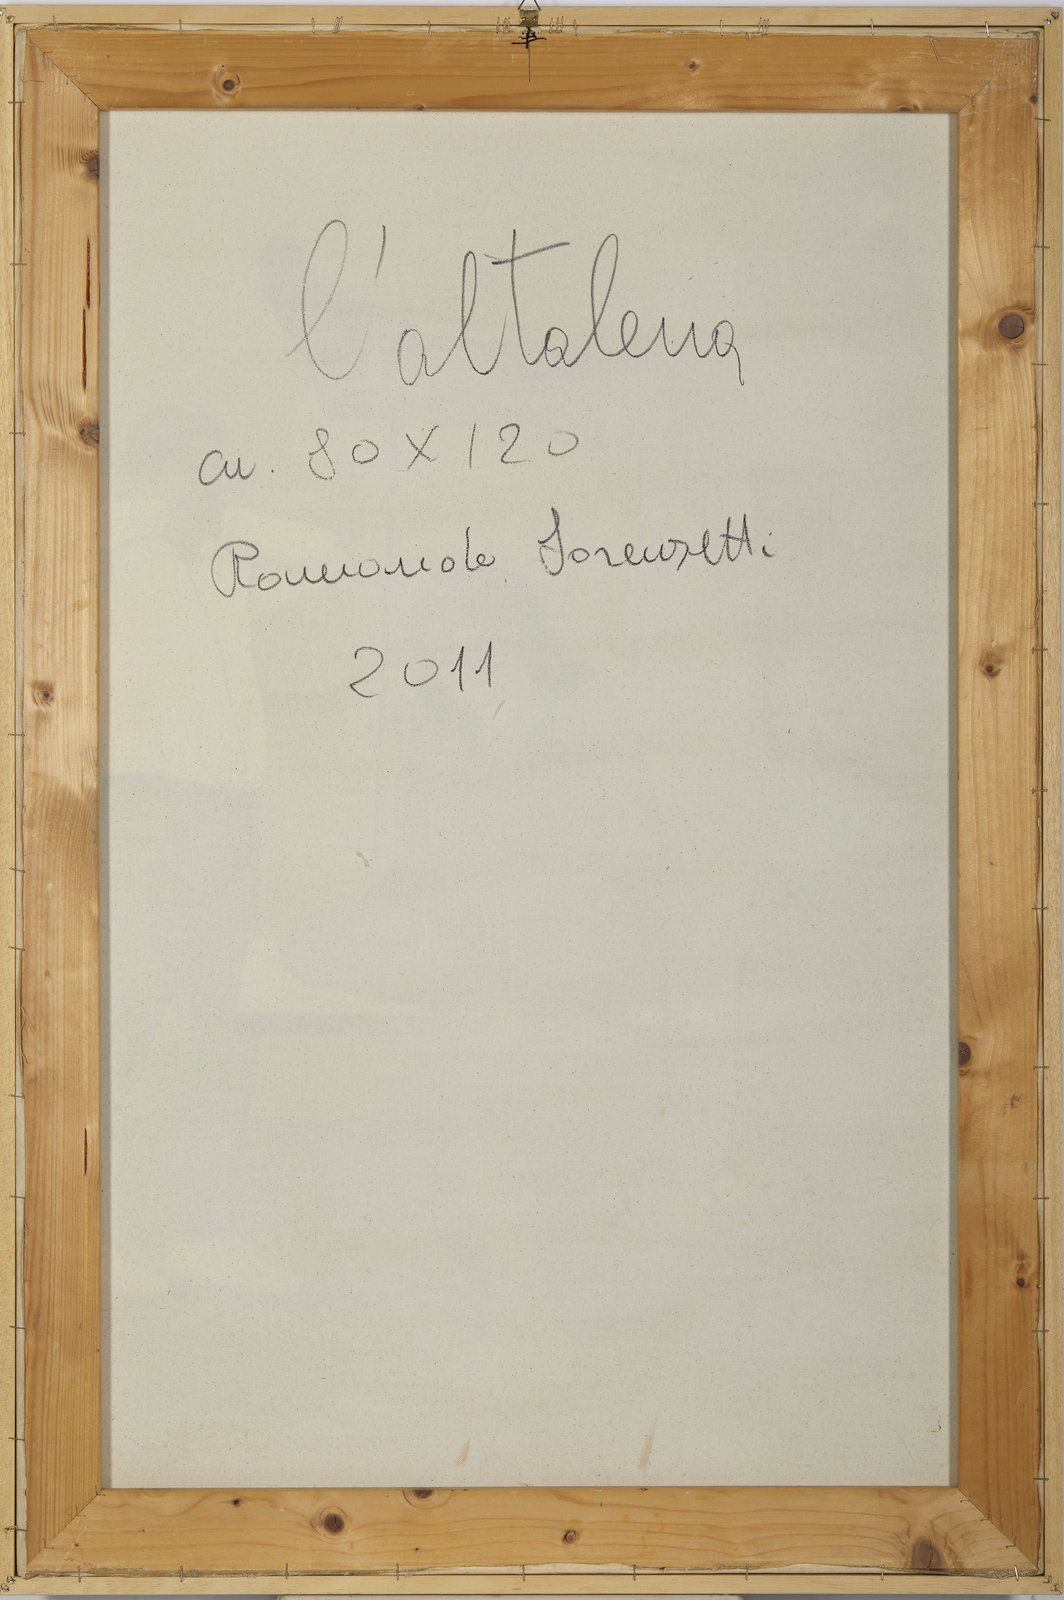 l'altalena
cm. 80 X 120
Romando Lorenzetti
2011